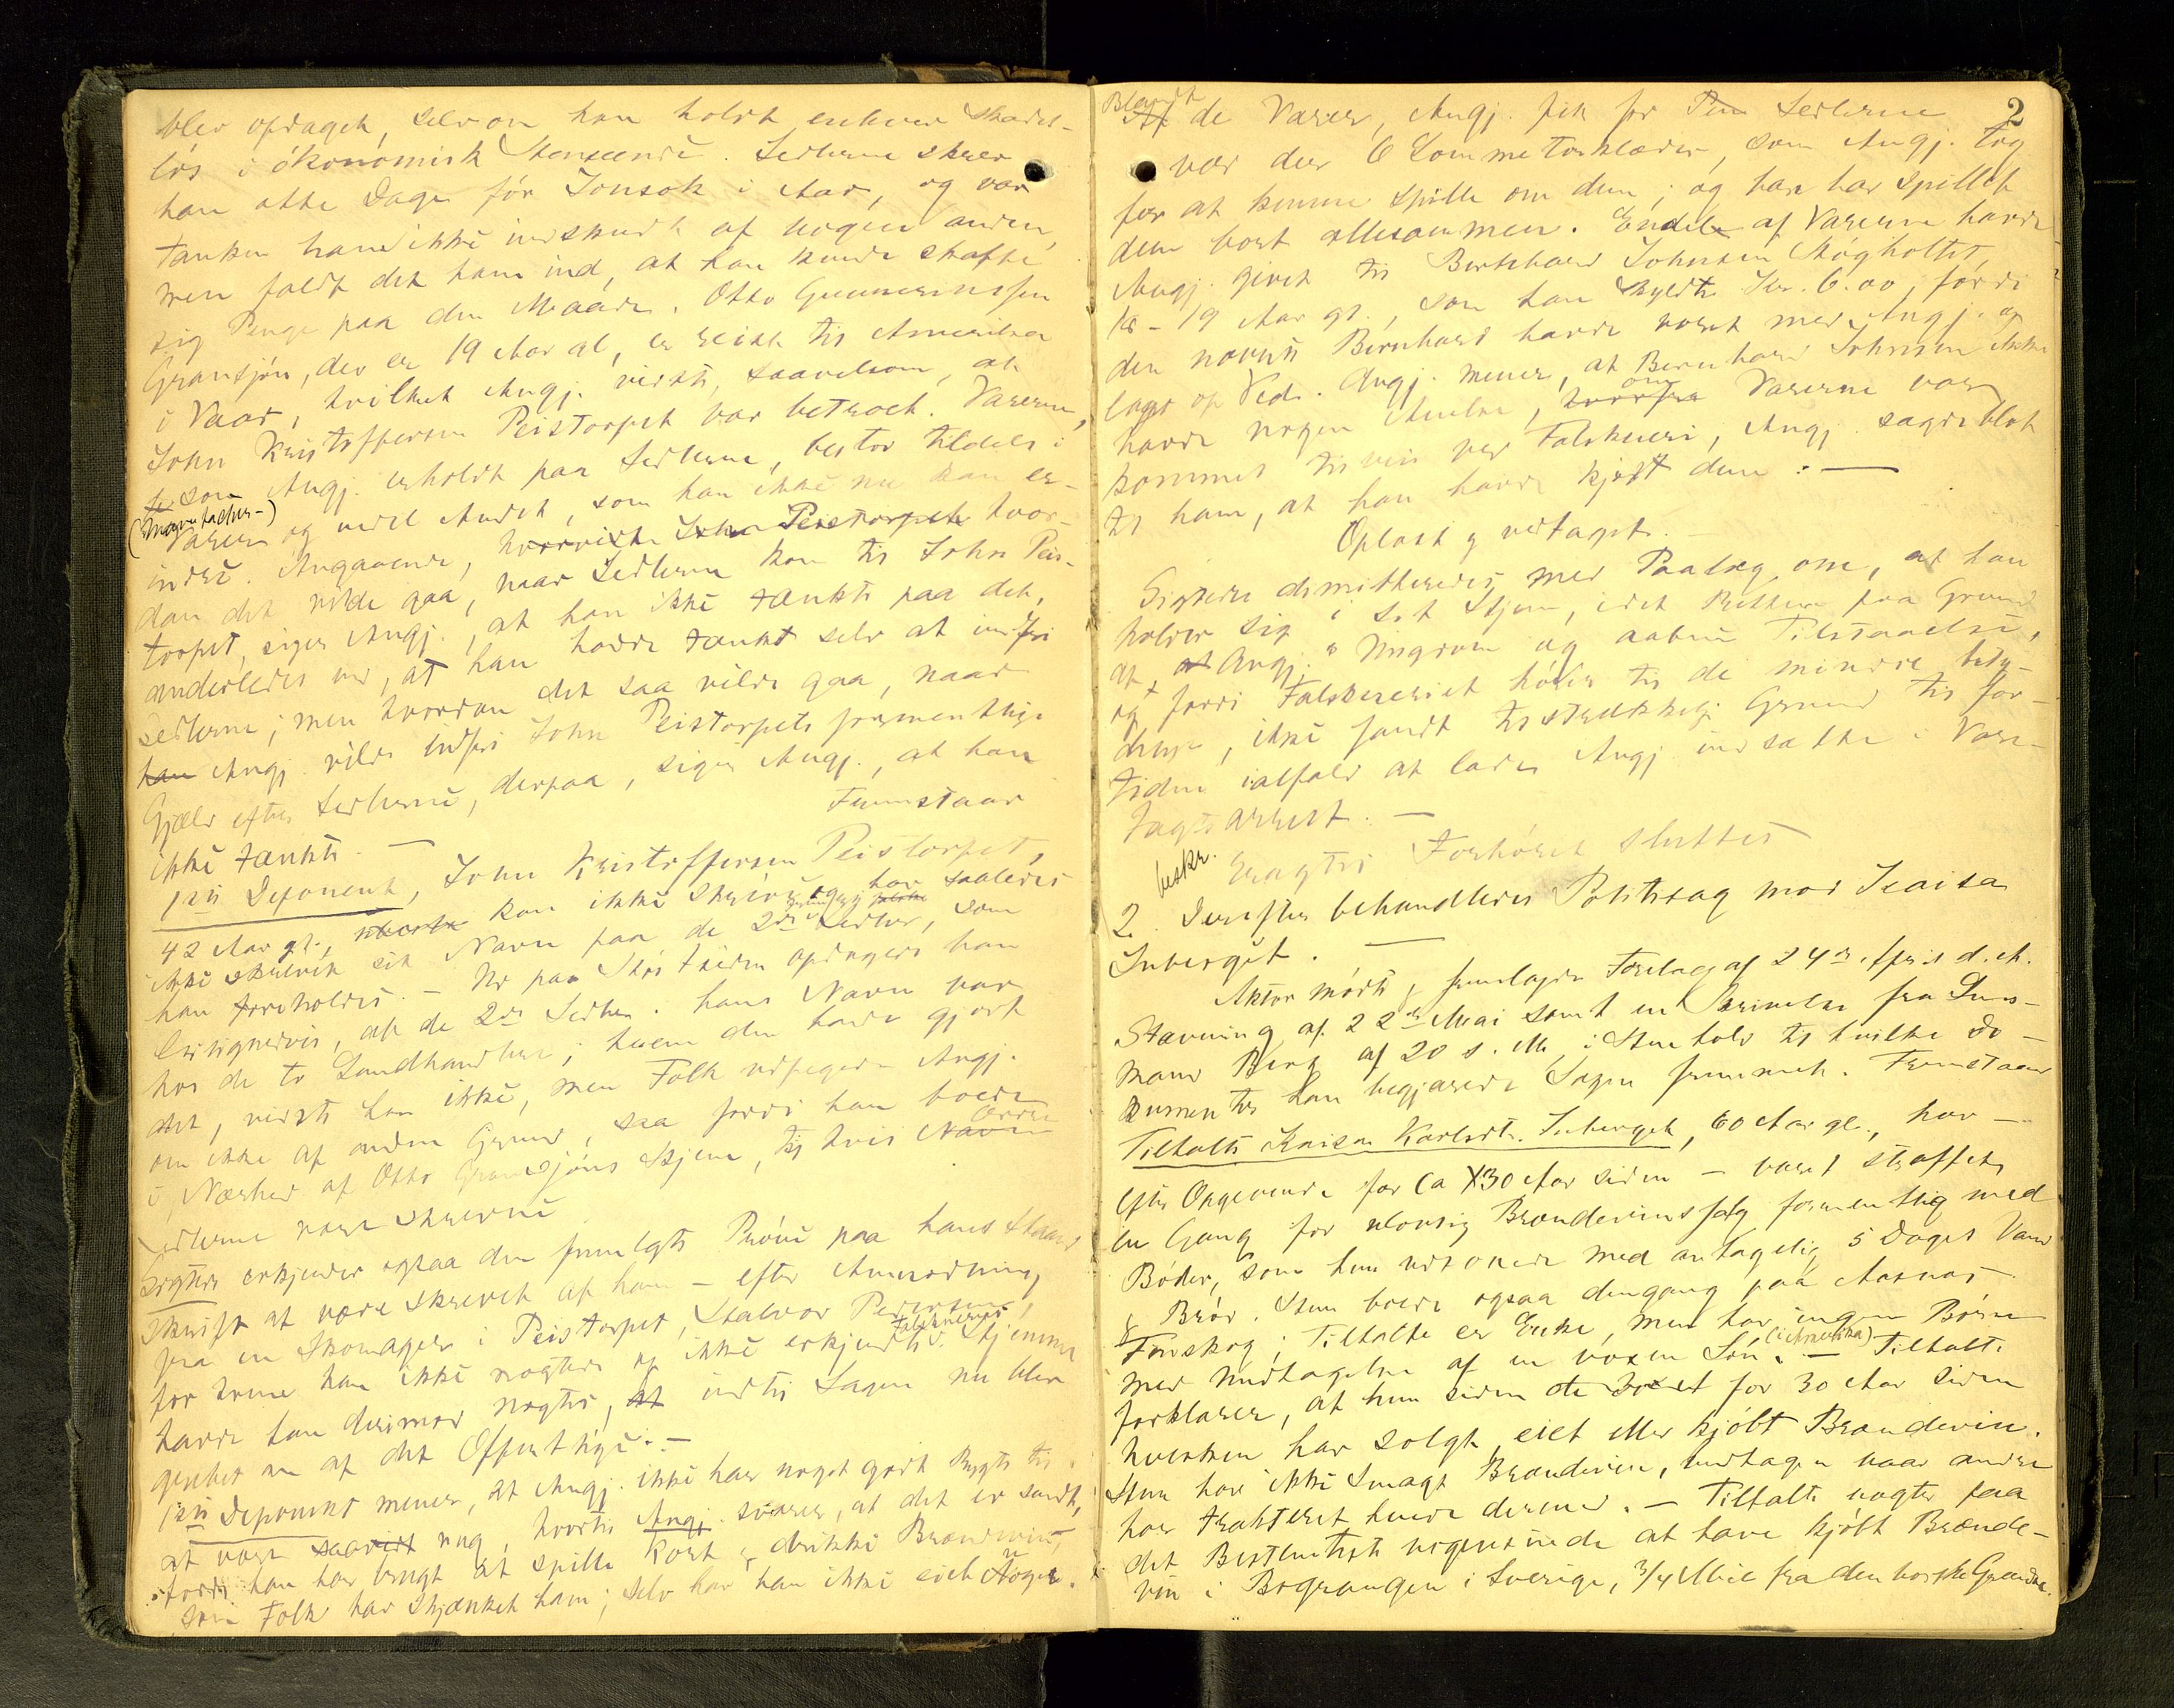 blev opdaget, selv om han holdt enhver skades-
løs i økonomisk Henseende. Sedlerne skrev
han otte Dage før Jonsok i Aar, og var
Tanken ham ikke indskudt af nogen anden,
men faldt det ham ind, at han kunde skaffe
sig Penge paa den Maade. Otto Gunneriussen
Gransjøn, der er 19 Aar gl, er reist til Amerika
i Vaar, hvilket Angj. vidste, saavelsom at
John Kristoffersen Peistorpet var betroet. Varerne,
som Angj. erholdt paa Sedlerne, bestod tildels i
(Manufactur-)
Varer og uidel Andet, som han ikke nu kan er-
indre. Angaaende, hvorvidt John Peistorpet hvor-
dan det vilde gaa, naar Sedlerne kom til John Peis-
torpet, siger Angj., at han ikke tænkte paa det,
anderledes end, at han havde tænkt selv at indfri
Sedlerne; men hvordan det saa vilde gaa, naar
han Angj. vilde indfri John Peistorpets formentlige
Gjæld efter Sedlerne, derpaa, siger Angj., at han
ikke tænkte. — Fremstaar
1ste Deponent, John Kristoffersen Peistorpet,
42 Aar gl., kan ikke skrive og har saaledes
ikke skrevet sit Navn paa de 2de Sedler, som
han foreholdes. — Nu paa Slos Tiden opdagede han
leilignedvis, at de 2de Sedler. hans Navn var
hos de to Landhandlere; hvem der havde gjort
det, vidste han ikke, men Folk udpegede Angj.
om ikke af anden Grund, saa fordi han boede
i Nærhed af Otto Gransjøns Hjem, til hvis Navn Ordre
Sedlerne vare skrevne
Sigtede erkjender ogsaa den fremlagte Prøve paa hans Haand
skrift at være skrevet af ham — efter Anmodning
fra en Skomager i Peistorpet, Halvor Pedersen,
for hvem han ikke nægtede og ikke erkjendte Falskneriet. Hjemme
havde han derimod nægtet, at indtil Sagen nu blev
grebet an af det Offentlige. —
1ste Deponent mener, at Angj. ikke har noget godt Rygte til
at være saavidt ung, hvortil Angj. svarer, at det er sandt,
fordi han har brugt at spille Kort & drikke Brændevin,
som Folk har skjænket ham; selv har han ikke eiet Noget.
2
Blandt
Af de Varer, Angj. fik for Pen Sedlerne
var der 6 Lommetørklæder, som Angj. tog
for at kunne spille om dem; og han har spillet
dem bort allesammen. Endel af Varerne havde
Angj. givet til Bernhard Johnsen Møgholtet,
18 - 19 Aar gl., som han skyldte Kr. 6.00, fordi
den nævnte Bernhard havde været med Angj. og
lagt op Ved. Angj. mener, at Bernhard Johnsen ikke
havde nogen Anelse, hvorfra om Varerne var
kommet tilveie ved Falskneri, Angj. sagde blot
til ham, at han havde kjøbt dem. —
Oplæst & vedtaget. —
Sigtede dimitteredes med Paalæg om, at han
holder sig i sit Hjem, idet Retten paa Grund
af, at Angj.s Ungdom og aabne Tilstaaelse,
og fordi Falskneriet hører til de mindre bety-
delige, ikke fandt tilstrækkelig Grund til for-
tiden ialfald at lade Angj. indsætte i Vare-
tægtsarrest. —
beskr. Eragtet Forhøret sluttet
2. Derefter behandledes Politisag mod Kaisa
Juberget. —
Aktor mødte & fremlagde Forelæg af 24de April d.A.
Stævning af 22de Mai samt en Skrivelse fra Lens-
mand Berg af 20 s. M., i Henhold til hvilke Do-
cumenter han begjærede Sagen fremmet. Fremstaar
Tiltalte Kaisa Karlsdt. Juberget, 60 Aar gl., har —
efter Opgivende for ca 30 Aar siden — været straffet
en Gang for ulovlig Brændevinssalg formentlig med
Bøder, som hun udsonede med antagelig 5 Dages Vand
& Brød. Hun boede ogsaa dengang paa Aasnæs
Finskog; Tiltalte er Enke, men har ingen Børn
med Undtagelse af en voxen Søn (i Amerika). — Tiltalte
forklarer, at hun siden det for 30 Aar siden
hverken har solgt, eiet eller kjøbt Brændevin.
Hun har ikke smagt Brændevin, undtagen naar andre
har trakteret hende dermed. — Tiltalte nægter paa
det Bestemteste nogensinde at have kjøbt Brænde-
vin i Bograngen i Sverige, 3/4 Mil fra den norske Grændse.